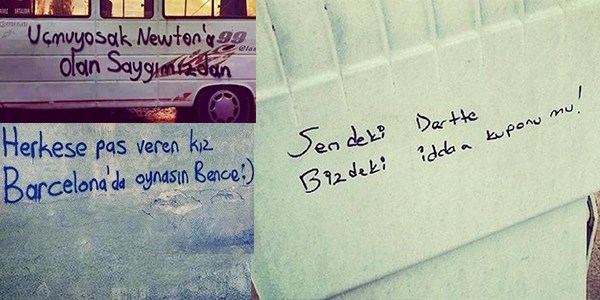 Uçmuyosak Newton'a
olan Saygımızdan
Herkese pas veren kız
Barcelona'da oynasın Bence:)
Sendeki Dertte
Bizdeki iddaa kuponu mu!